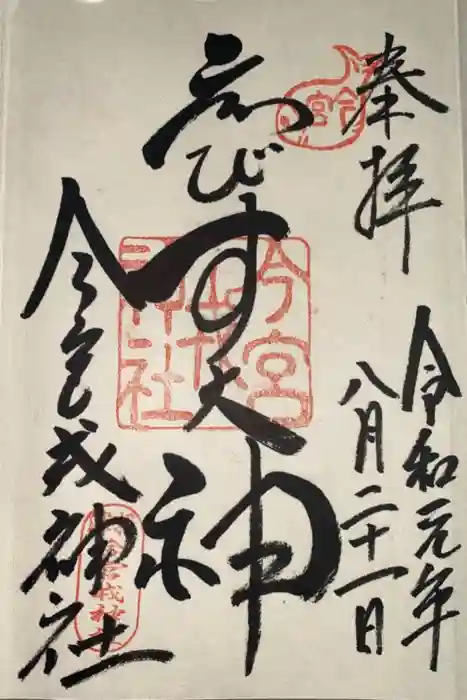 奉拝
令和元年
八月二十一日
ゑびす大神
今宮戎神社
今宮
今宮戎神社